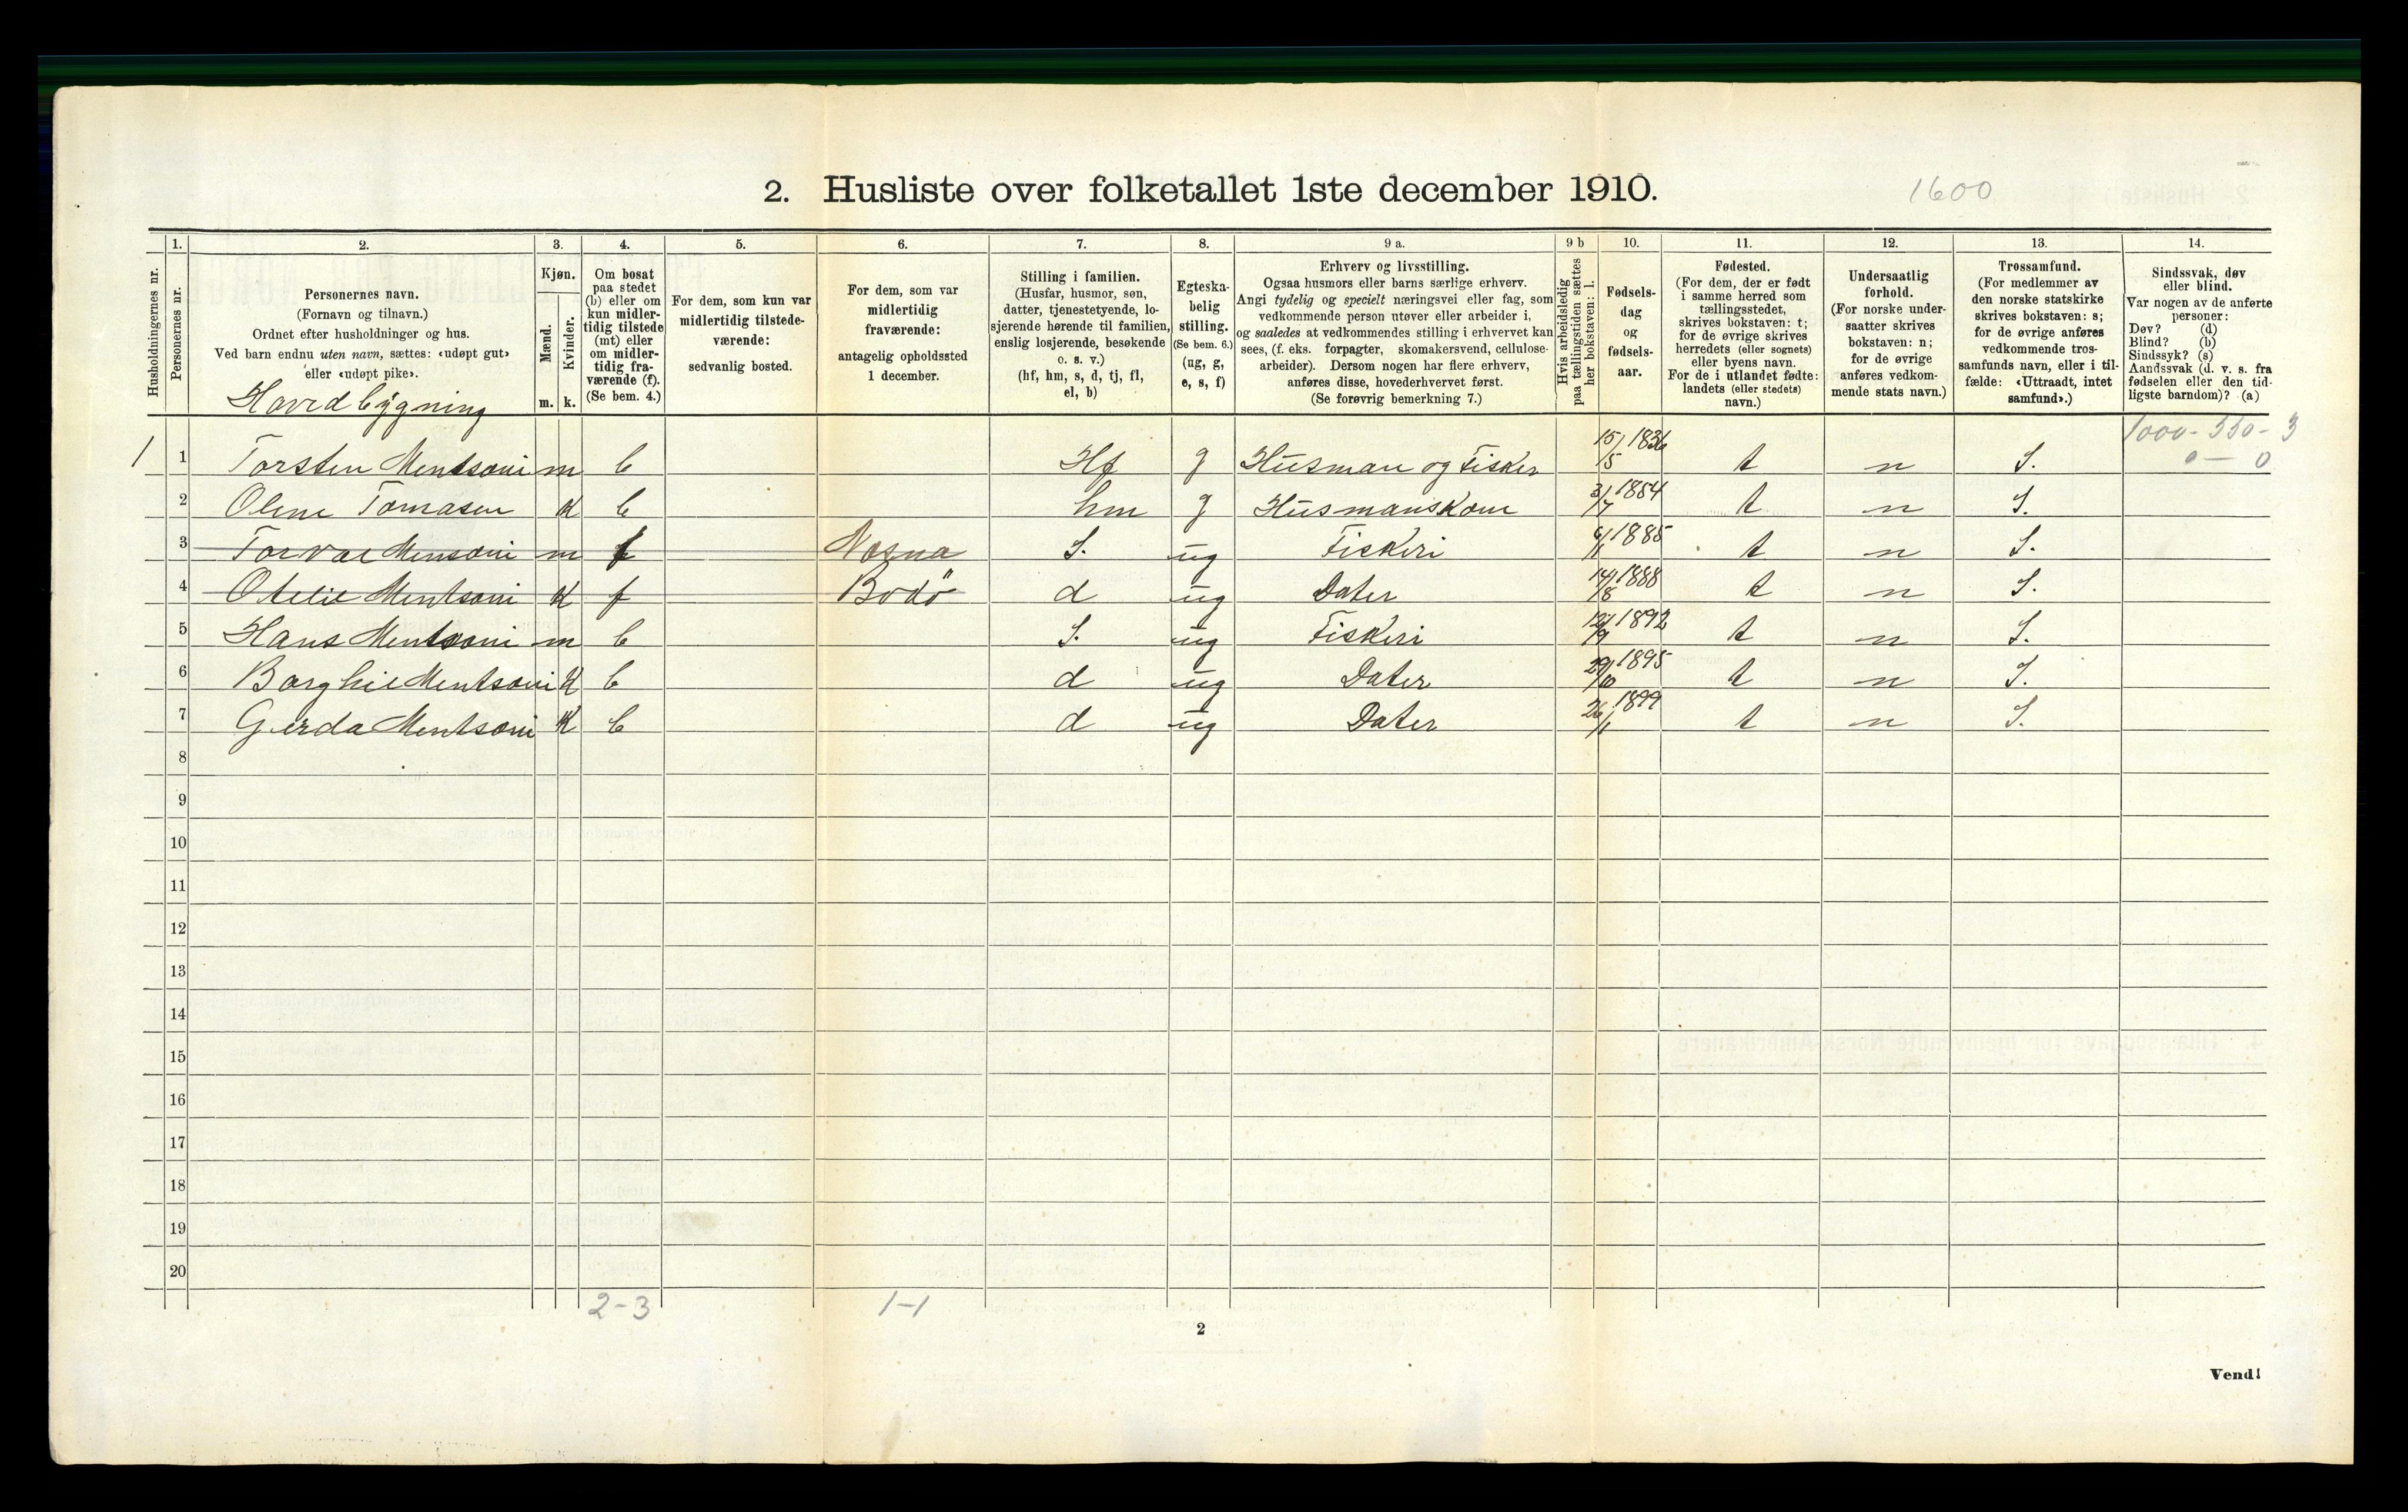 2. Husliste over folketallet 1ste december 1910.
1600
Husholdningernes nr.
1.
Personernes nr.
2.
Personernes navn.
(Fornavn og tilnavn.)
Ordnet efter husholdninger og hus.
Ved barn endnu uten navn, sættes: «udøpt gut»
eller «udøpt pike».
Hovedbygning
3.
Kjøn.
Mænd.
Kvinder.
m. k.
4.
Om bosat
paa stedet
(b) eller om
kun midler-
tidig tilstede
(mt) eller
om midler-
tidig fra-
værende (f).
(Se bem. 4.)
5.
For dem, som kun var
midlertidig tilstede-
værende:
sedvanlig bosted.
6.
For dem, som var
midlertidig
fraværende:
antagelig opholdssted
1 december.
7.
Stilling i familien.
(Husfar, husmor, søn,
datter, tjenestetyende, lo-
sjerende hørende til familien,
enslig losjerende, besøkende
o. s. v.)
(hf, hm, s, d, tj, fl,
el, b)
8.
Egteska-
belig
stilling.
(Se bem. 6.)
(ug, g,
e, s, f)
9 a.
Erhverv og livsstilling.
Ogsaa husmors eller barns særlige erhverv.
Angi tydelig og specielt næringsvei eller fag, som
vedkommende person utøver eller arbeider i,
og saaledes at vedkommendes stilling i erhvervet kan
sees, (f. eks. forpagter, skomakersvend, cellulose-
arbeider). Dersom nogen har flere erhverv,
anføres disse, hovederhvervet først.
(Se forøvrig bemerkning 7.)
9 b
Hvis arbeidsledig
paa tællingstiden sættes
her bokstaven: l.
10.
Fødsels-
dag
og
fødsels-
aar.
11.
Fødested.
(For dem, der er født
i samme herred som
tællingsstedet,
skrives bokstaven: t;
for de øvrige skrives
herredets (eller sognets)
eller byens navn.
For de i utlandet fødte:
landets (eller stedets)
navn.)
12.
Undersaatlig
forhold.
(For norske under-
saatter skrives
bokstaven: n;
for de øvrige
anføres vedkom-
mende stats navn.)
13.
Trossamfund.
(For medlemmer av
den norske statskirke
skrives bokstaven: s;
for de øvrige anføres
vedkommende tros-
samfunds navn, eller i til-
fælde: «Uttraadt, intet
samfund».)
14.
Sindssvak, døv
eller blind.
Var nogen av de anførte
personer:
Døv? (d)
Blind? (b)
Sindssyk? (s)
Aandssvak (d. v. s. fra
fødselen eller den tid-
ligste barndom)? (a)
1000-550-3
0 — 0
1 1 Torsten Mentsoni m b Hf g Husman og Fisker 15/5 1836 t n S.
2 Olene Tomasen k b hm g Husmanskone 3/7 1854 t n S.
3 Torval Mensoni m f Nesna S. ug Fiskeri 1885 t n S.
4 Otelie Mentsoni k f Bodö d ug Dater 14/8 1888 t n S.
5 Hans Mentsoni m b S. ug Fiskeri 1892 t n S.
6 Borghil Mentsoni k b d ug Dater 29/10 1895 t n S.
7 Gerda Mentsoni k b d ug Dater 26/1 1899 t n S.
8
9
10
11
12
13
14
15
16
17
18
19
20
2-3
1-1
2
Vend!